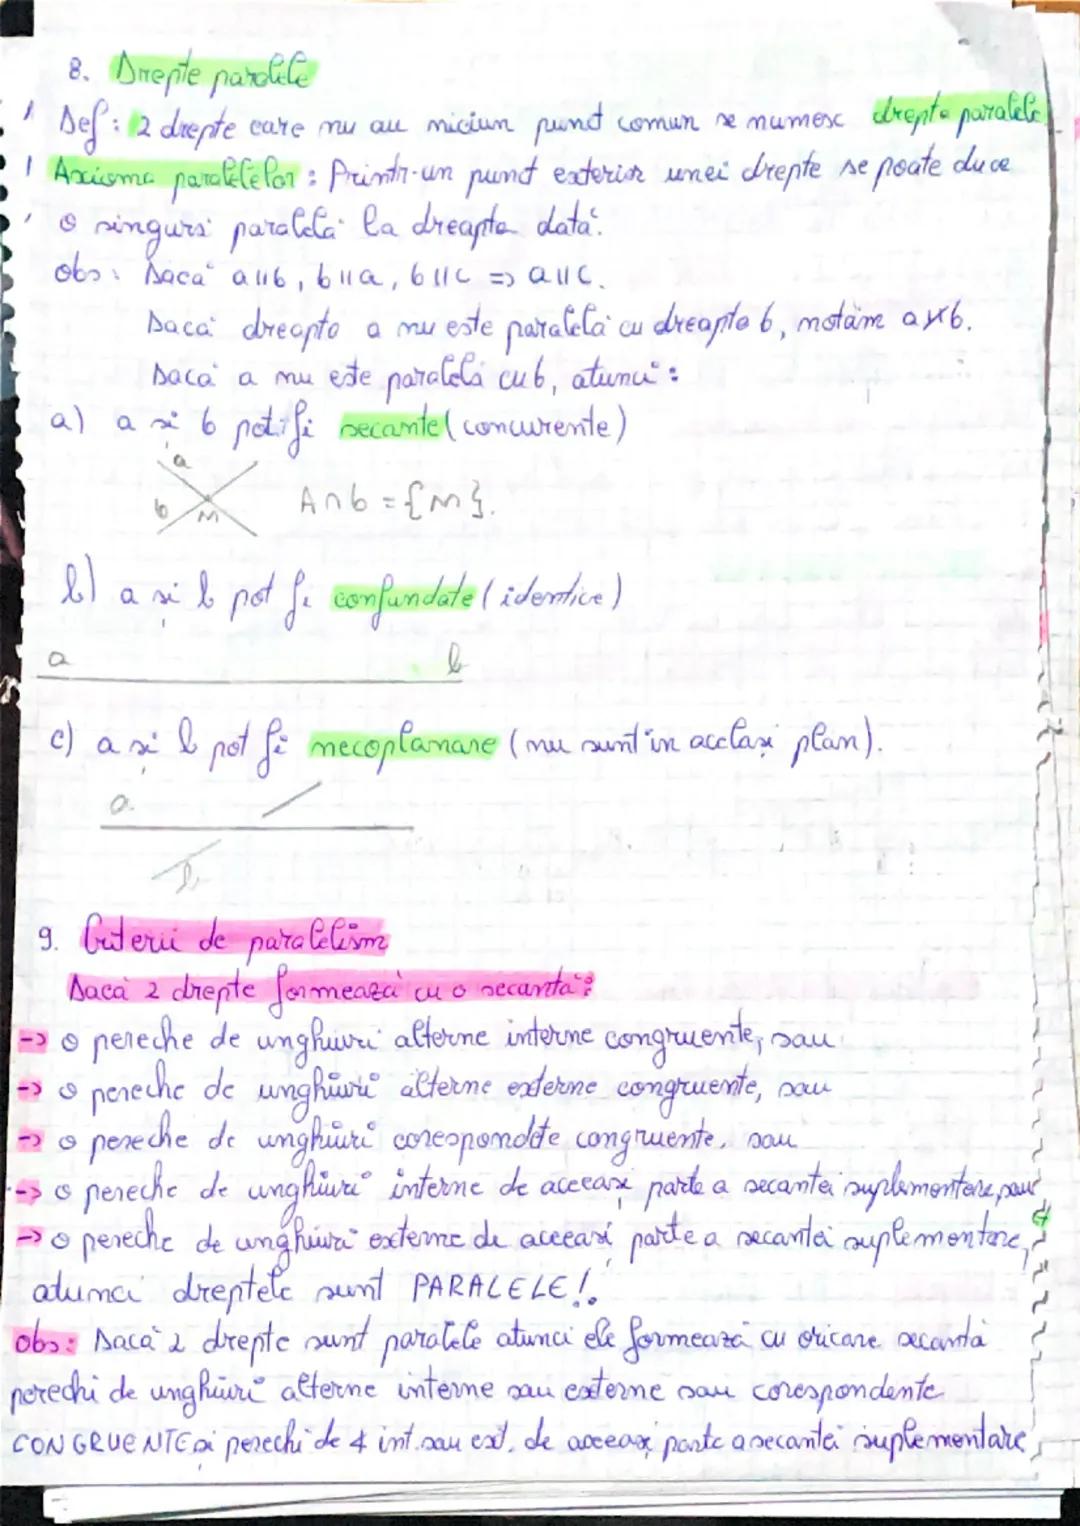 8. Drepte paralele
Def: 2 drepte care nu au niciun punct comun se numesc drepte paralele
Axioma paralelelor: Printr-un punct exterior unei drepte se poate duce
o singură paralelă la dreapta dată.
obs: Dacă a∥b, b∥a, b∥c => a∥c.
Dacă dreapta a nu este paralelă cu dreapta b, notăm a∦b.
Dacă a nu este paralelă cu b, atunci:
a) a și b pot fi secante (concurente)
a
b M A∩b = {M}.
b) a și b pot fi confundate (identice)
a b
c) a și b pot fi necoplanare (nu sunt în același plan).
a
b
9. Criterii de paralelism
Dacă 2 drepte formează cu o secantă:
-> o pereche de unghiuri alterne interne congruente, sau
-> o pereche de unghiuri alterne externe congruente, sau
-> o pereche de unghiuri corespondete congruente, sau
-> o pereche de unghiuri interne de aceeași parte a secantei suplementare, sau
-> o pereche de unghiuri externe de aceeași parte a secantei suplementare,
atunci dreptele sunt PARALELE!.
obs: Dacă 2 drepte sunt paralele atunci ele formează cu oricare secantă
perechi de unghiuri alterne interne sau externe sau corespondente
CONGRUENTE și perechi de ∢ int. sau ext. de aceeași parte a secantei suplementare